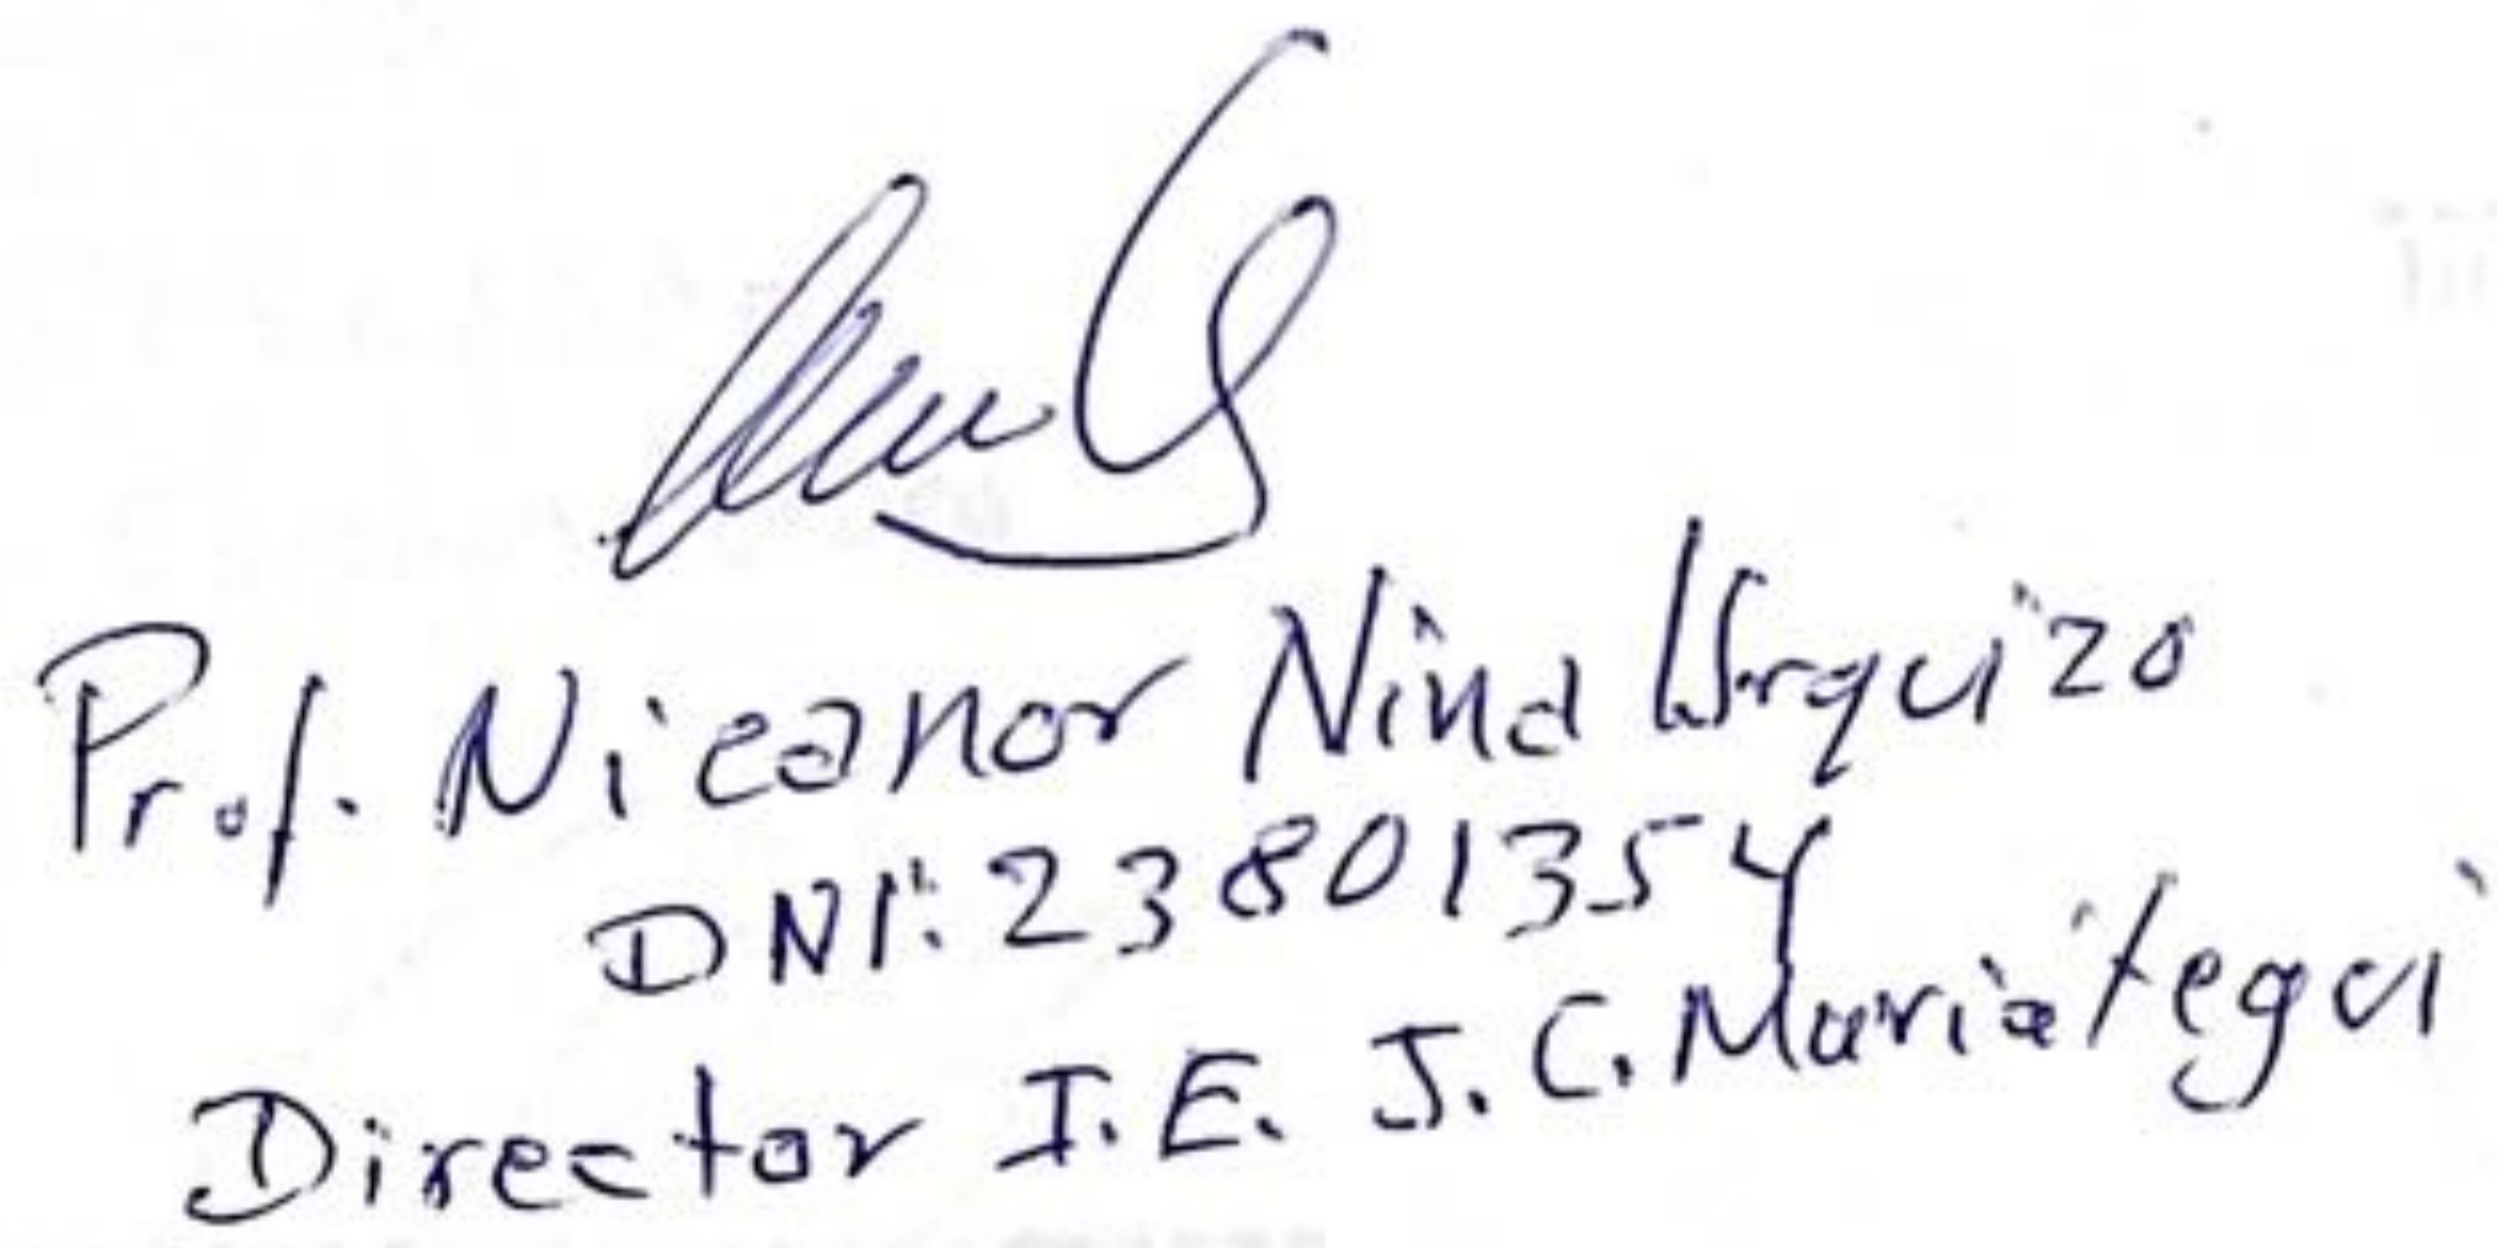 Prof. Nicanor Nina Urquizo
DNI: 23801354
Director I.E. J.C. Mariátegui